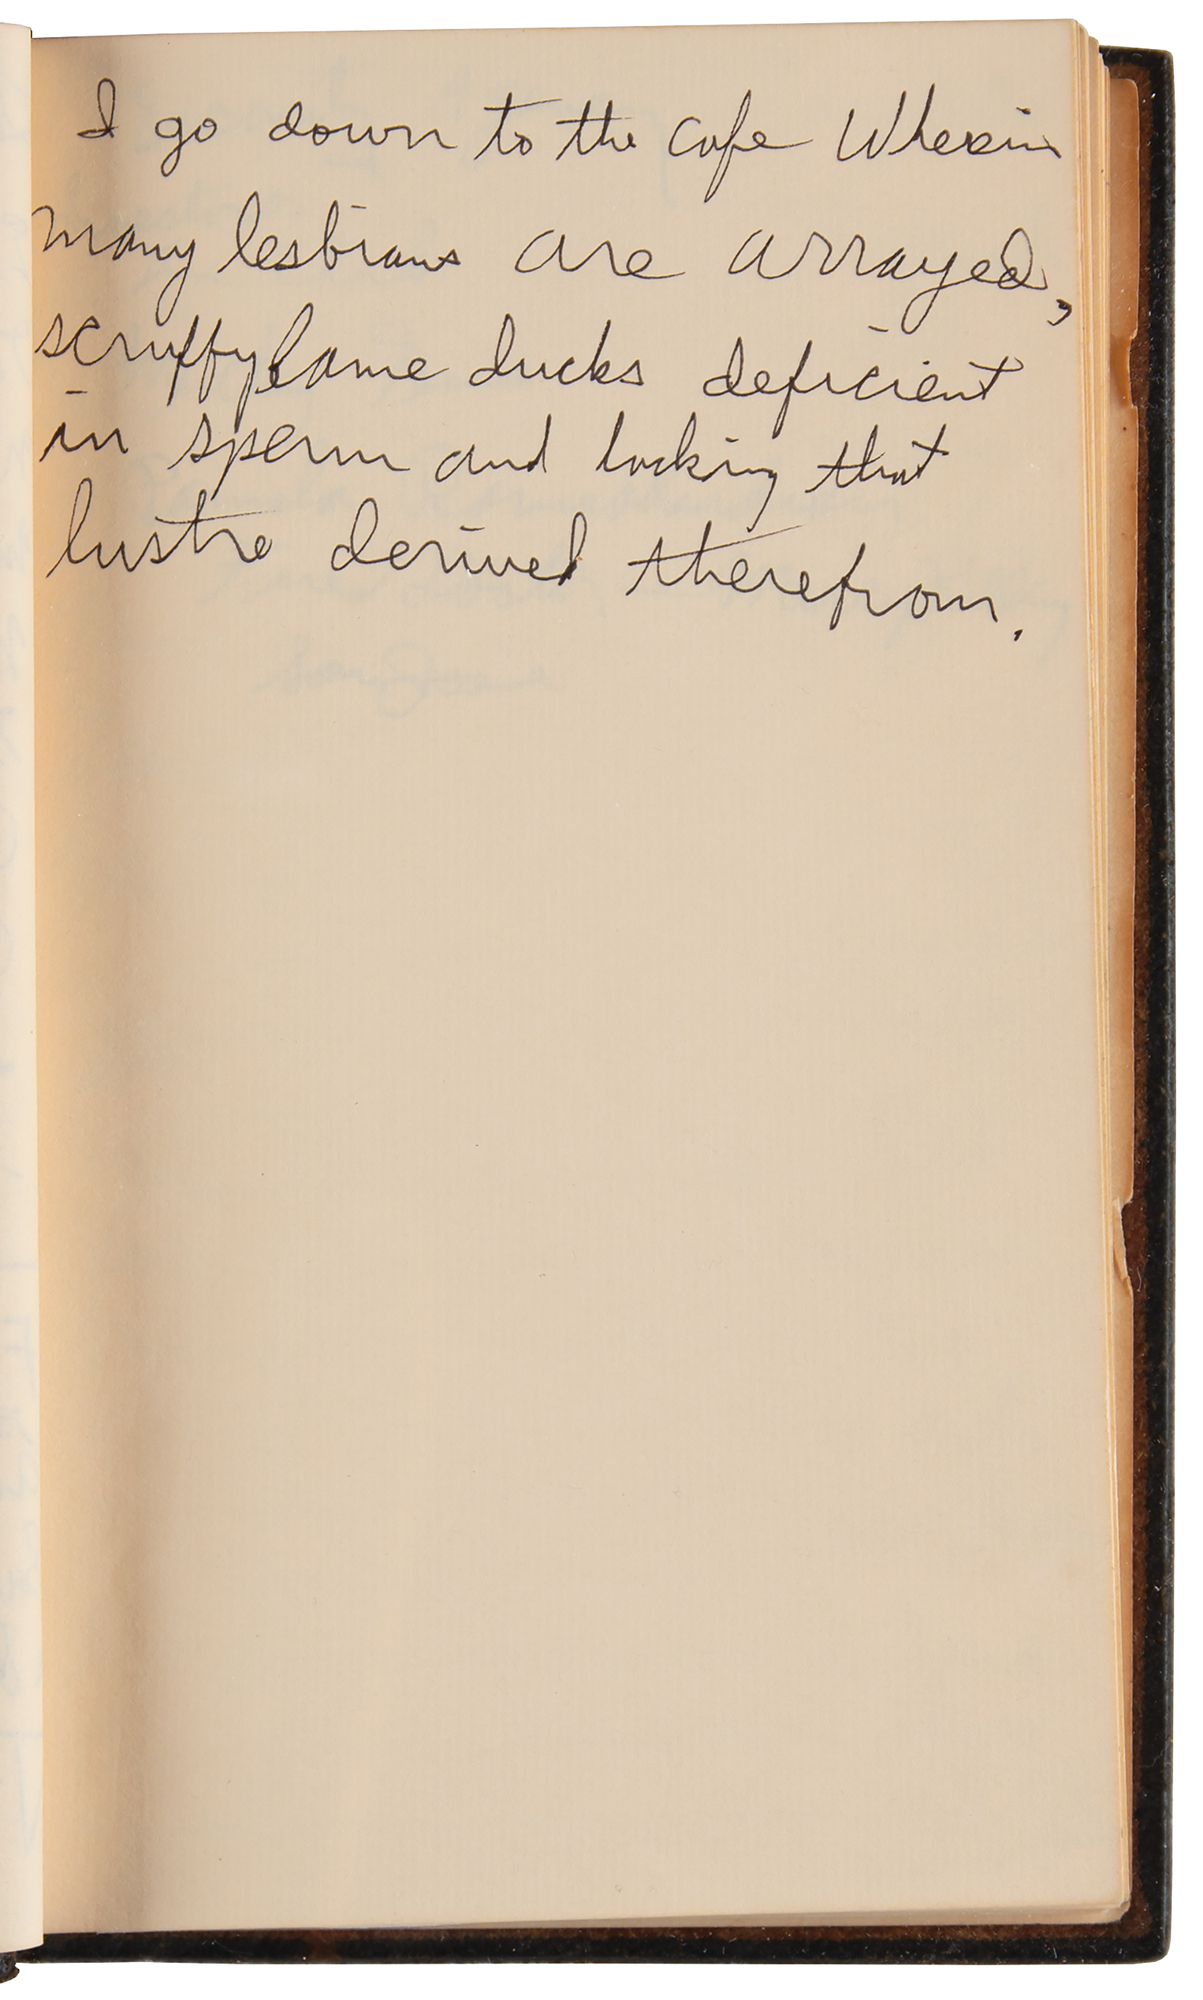 I go down to the cafe Wherein
many lesbians are arrayed,
scruffy lame ducks deficient
in sperm and lacking that
lustre derived therefrom.